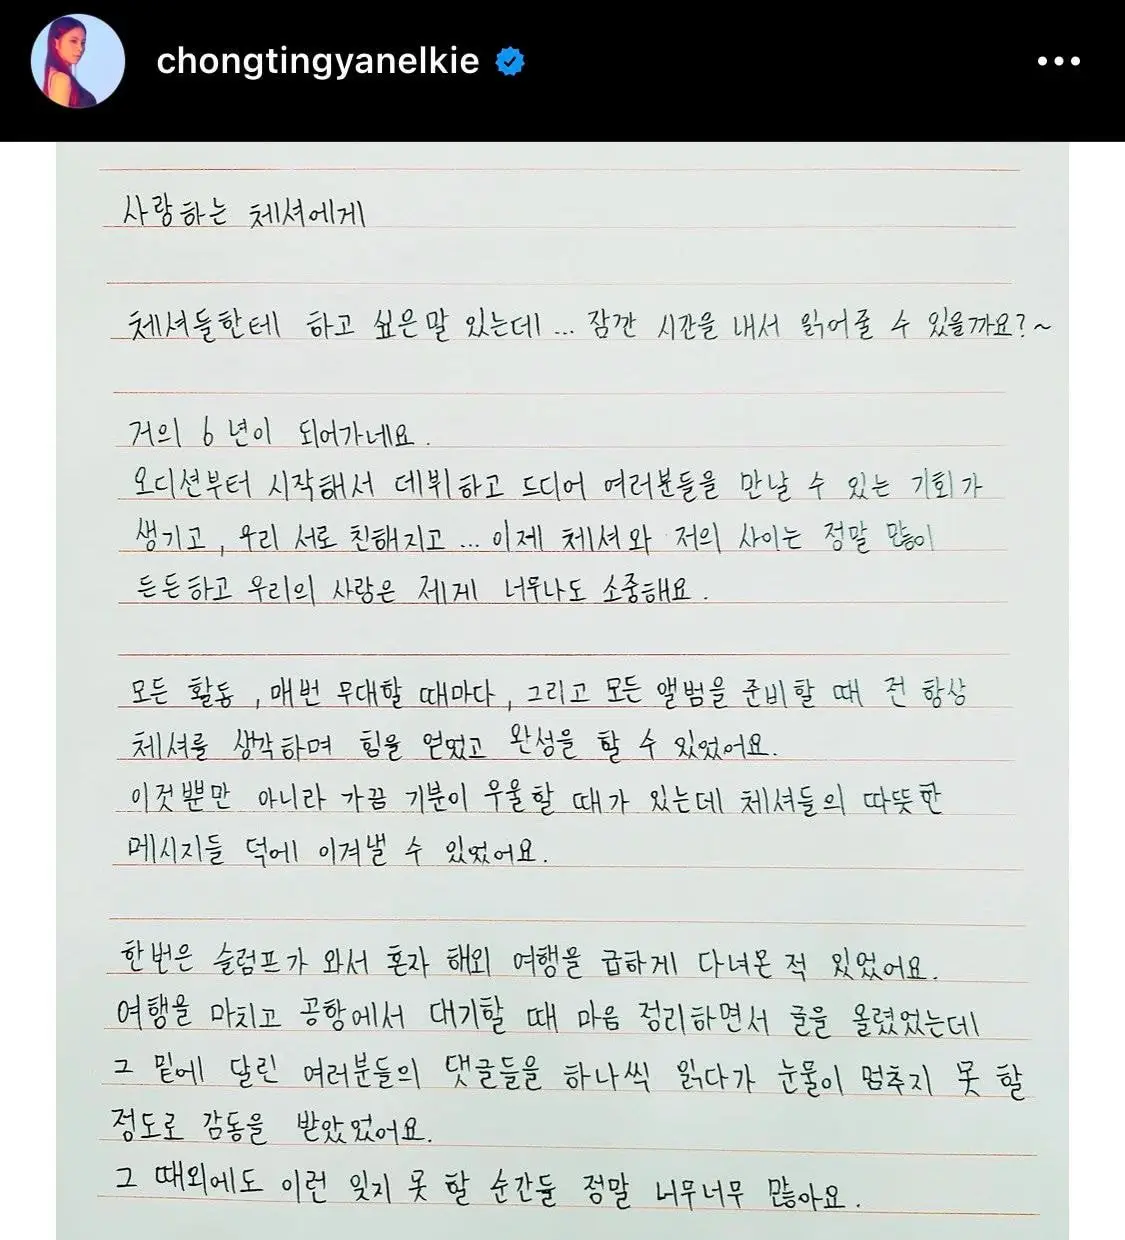 chongtingyanelkie
사랑하는 체셔에게
체셔들한테 하고 싶은말 있는데... 잠깐 시간을 내서 읽어줄 수 있을까요?~
거의 6년이 되어가네요.
오디션부터 시작해서 데뷔하고 드디어 여러분들을 만날 수 있는 기회가
생기고, 우리 서로 친해지고... 이제 체셔와 저의 사이는 정말 많이
든든하고 우리의 사랑은 제게 너무나도 소중해요.
모든 활동, 매번 무대할 때마다, 그리고 모든 앨범을 준비할 때 전 항상
체셔를 생각하며 힘을 얻었고 완성을 할 수 있었어요.
이것뿐만 아니라 가끔 기분이 우울할 때가 있는데 체셔들의 따뜻한
메시지들 덕에 이겨낼 수 있었어요.
한번은 슬럼프가 와서 혼자 해외 여행을 급하게 다녀온 적 있었어요.
여행을 마치고 공항에서 대기할 때 마음 정리하면서 글을 올렸었는데
그 밑에 달린 여러분들의 댓글들을 하나씩 읽다가 눈물이 멈추지 못 할
정도로 감동을 받았었어요.
그 때외에도 이런 잊지 못 할 순간들 정말 너무너무 많아요.